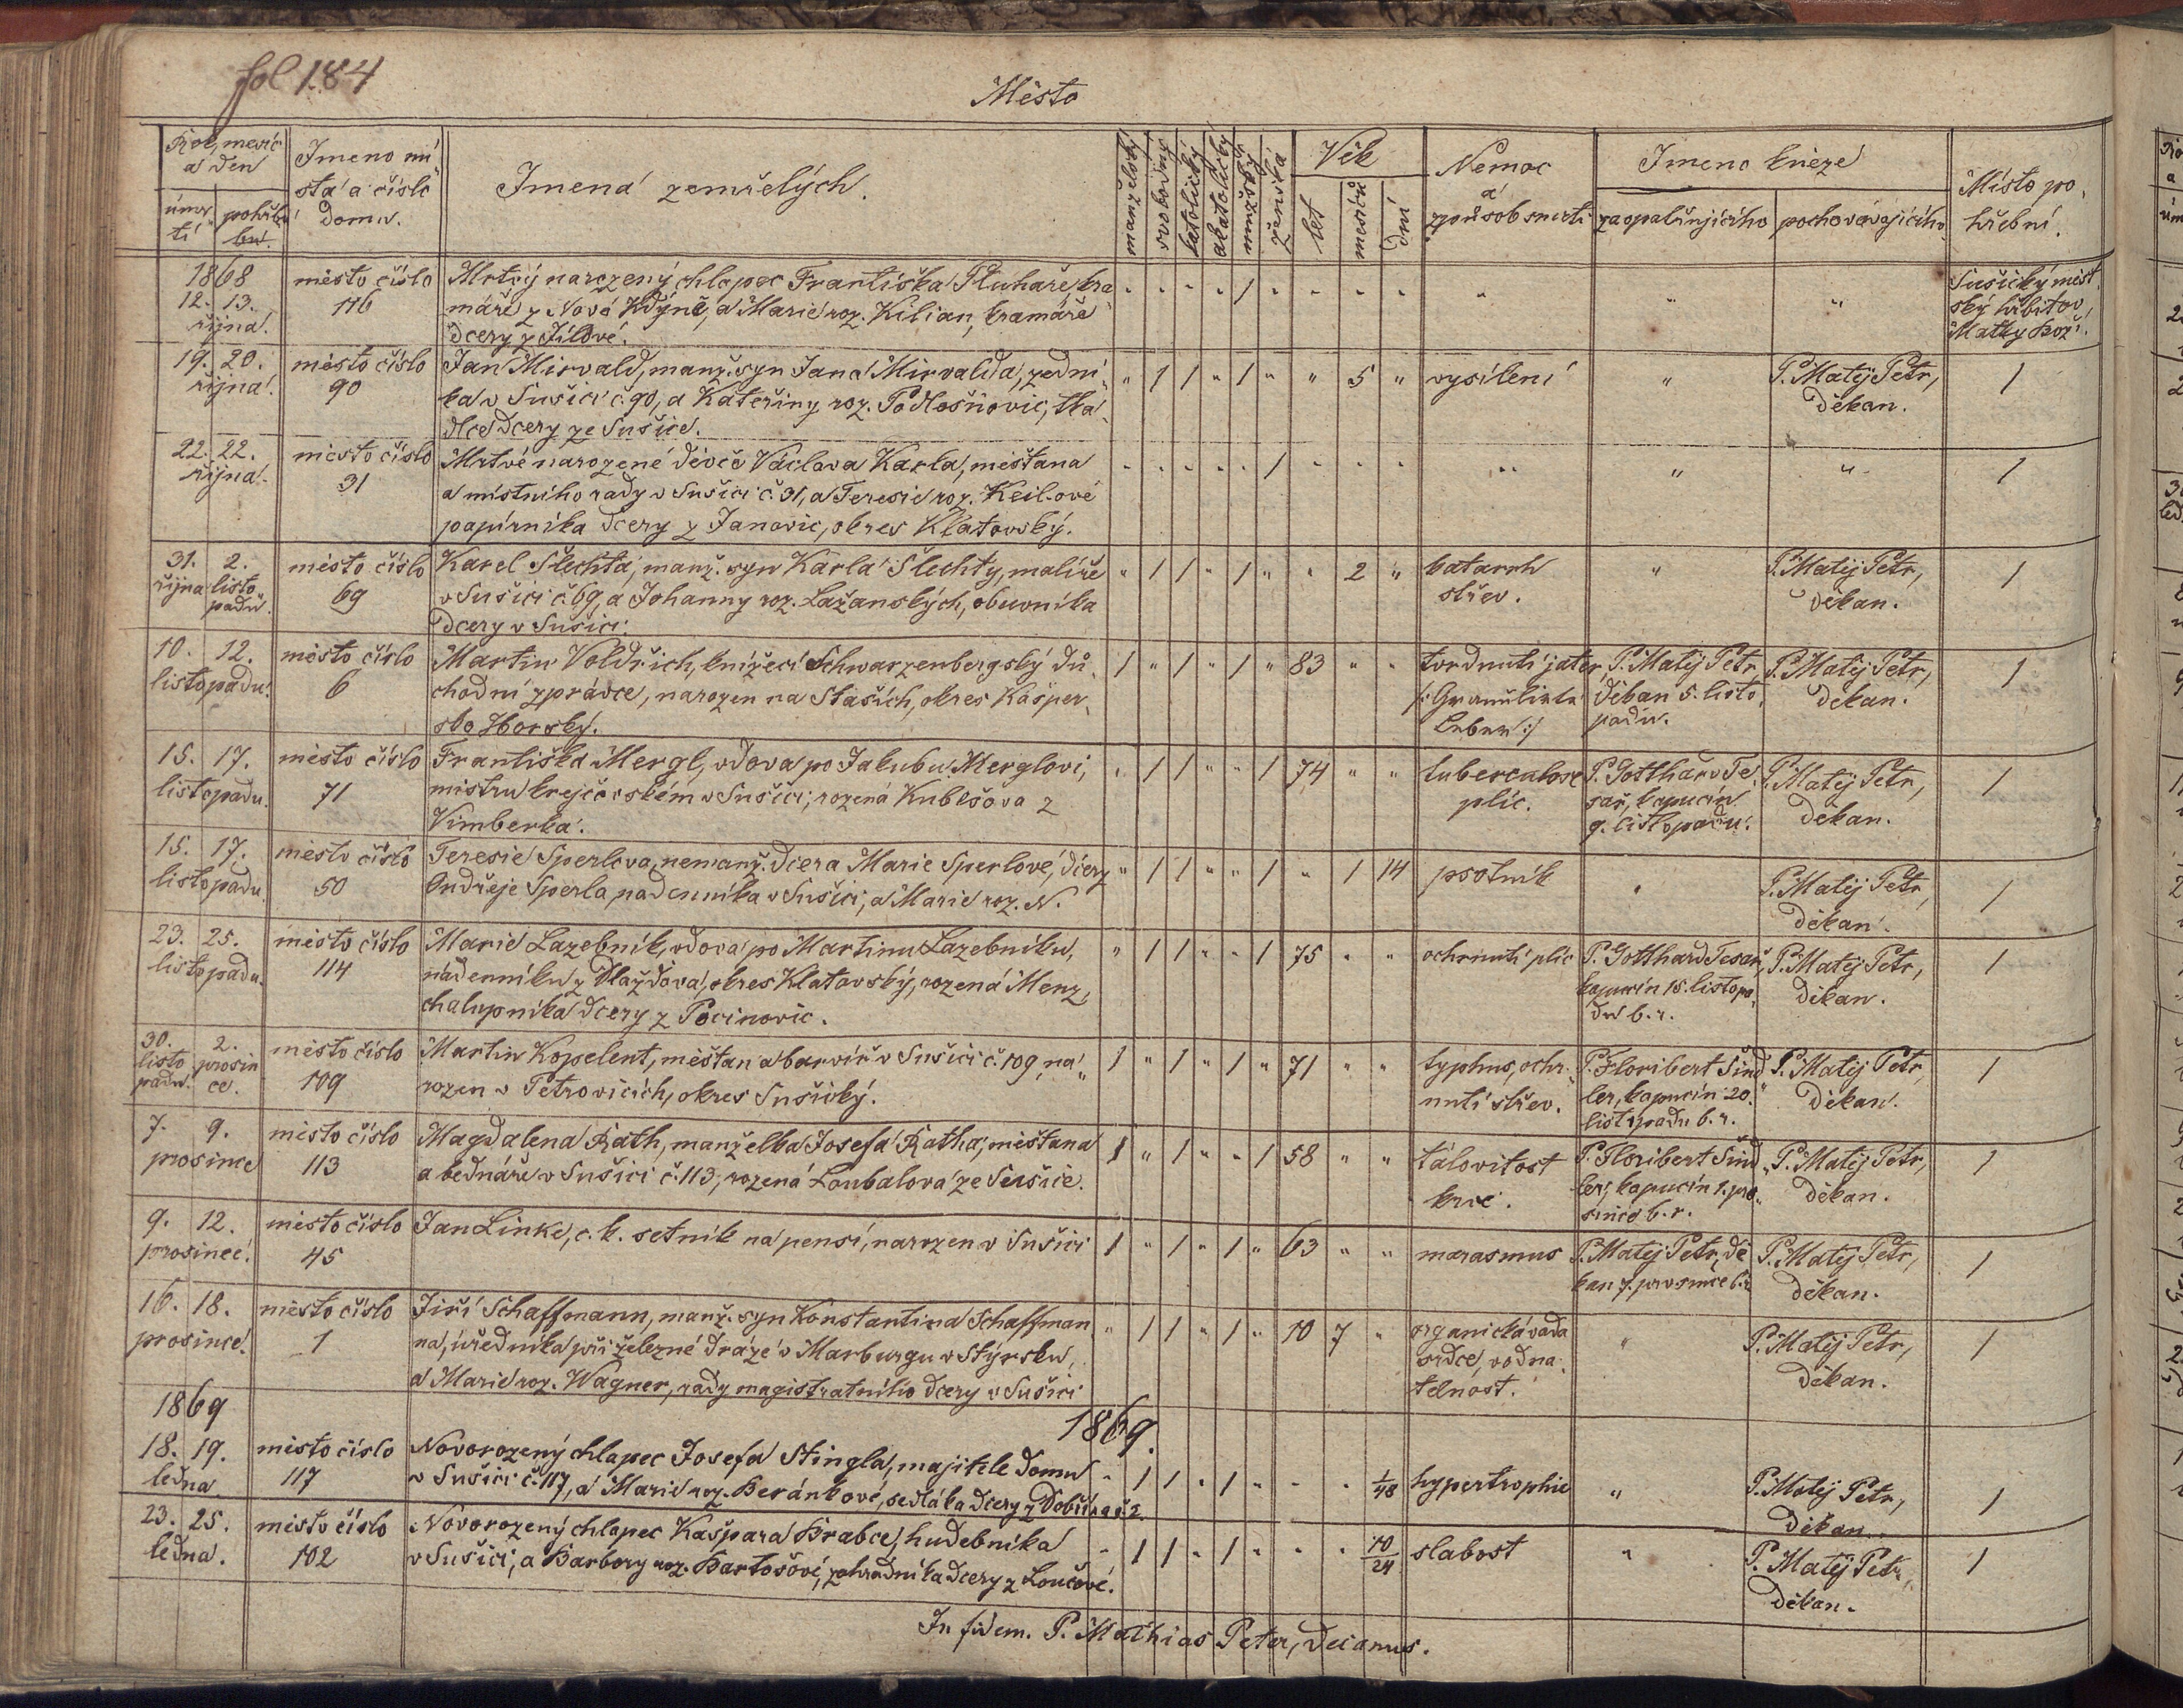 fol 184
Město
Rok, mesíc a den
úmrtí
pohřbu
Jmeno místa a číslo domu.
Jmena zemřelých.
manželský
svobodný
katolický
akatolický
mužský
ženská
Věk
let
mesíců
dní
Nemoc a způsob smrti
Jmeno kněze
zaopatřujícího
pochovávajícího
Místo pohřební.
1868
12. 13. října.
město číslo 116
Mrtvý narozený chlapec Františka Pluhaře, kra-
máře z Nové Kdýně, a Marie roz. Kilian, kramáře
dcery z Jílové.
" " " " 1 " " " "
" " "
Sušický měst-
ský hřbitov
Matky Boží.
19. 20. října.
město číslo 90
Jan Mirvald, manž. syn Jana Mirvalda, zední-
ka v Sušici č. 90, a Kateřiny roz. Podlešňovic, tka-
dlce dcery ze Sušice.
" 1 1 " 1 " " 5 "
vysílení
"
P. Matěj Petr,
děkan.
1
22. 22. října.
město číslo 31
Mrtvé narozené děvče Václava Karla, měšťana
a místního rady v Sušici č. 31, a Teresie roz. Keil-ové
papírníka dcery z Janovic, okres Klatovský.
" " " " " 1 " " "
" " "
1
31. října 2. listopadu.
město číslo 69
Karel Šlechta, manž. syn Karla Šlechty, malíře
v Sušici č. 69, a Johanny roz. Lažanských, obuvníka
dcery v Sušici.
" 1 1 " 1 " " 2 "
katarrh
střev.
"
P. Matěj Petr,
děkan.
1
10. 12. listopadu.
město číslo 6
Martin Voldřich, knížecí Schwarzenbergský dů-
chodní zprávce, narozen na Staších, okres Kašper-
sko Horský.
1 " 1 " 1 " 83 " "
tvrdnutí jater,
/: Granulirte
Leber :/
P. Matěj Petr,
děkan 5. listo-
padu.
P. Matěj Petr,
děkan.
1
15. 17. listopadu.
město číslo 71
Františka Mergl, vdova po Jakubu Merglovi,
mistru krejčovském v Sušici; rozená Kubešova z
Vimberka.
" 1 1 " " 1 74 " "
tuberculose
plic.
P. Gotthard Te-
sař, kapucín
9. listopadu.
P. Matěj Petr,
děkan.
1
15. 17. listopadu.
město číslo 50
Teresie Sperlova, nemanž. dcera Marie Sperlové, dcery
Ondřeje Sperla, nadenníka v Sušici, a Marie roz. N.
" 1 1 " " 1 " 1 14
psotník
"
P. Matěj Petr,
děkan.
1
23. 25. listopadu.
město číslo 114
Marie Lazebník, vdova po Martinu Lazebníku,
nádenníku z Dlažďova, okres Klatovský, rozená Menz,
chalupníka dcery z Pocinovic.
" 1 1 " " 1 75 " "
ochrnutí plic
P. Gotthard Tesař,
kapucín 15. listopa-
du b. r.
P. Matěj Petr,
děkan.
1
30. listopadu. 2. prosince.
město číslo 109
Martin Kopelent, měšťan a barvíř v Sušici č. 109, na-
rozen v Petrovicích, okres Sušický.
1 " 1 " 1 " 71 " "
typhus, ochr-
nutí střev.
P. Floribert Šind-
ler, kapucín 20.
listopadu b. r.
P. Matěj Petr,
děkan.
1
7. 9. prosince
město číslo 113
Magdalena Rath, manželka Josefa Ratha, měšťana
a bednáře v Sušici č. 113, rozená Loubalova ze Sušice.
1 " 1 " " 1 58 " "
tálovitost
krve.
P. Floribert Šind-
ler, kapucín 1. pro-
since b. r.
P. Matěj Petr,
děkan.
1
9. 12. prosince.
město číslo 45
Jan Linke, c. k. setník na pensí, narozen v Sušici
1 " 1 " 1 " 63 " "
marasmus
P. Matěj Petr, dě-
kan 7. prosince b. r.
P. Matěj Petr,
děkan.
1
16. 18. prosince.
město číslo 1
Jiří Schaffmann, manž. syn Konstantina Schaffman-
na, úředníka při železné dráze v Marburgu v Štýrsku,
a Marie roz. Wagner, rady magistratního dcery v Sušici
" 1 1 " 1 " 10 7 "
organická vada
srdce, vodna-
telnost.
"
P. Matěj Petr,
děkan.
1
1869
1869.
18. 19. ledna
město číslo 117
Novorozený chlapec Josefa Stingla, majitele domu
v Sušici č. 117, a Marie roz. Beránkové, sedláka dcery z Dobřína č. 2.
" 1 1 " 1 " " " 1/48
hypertrophie
"
P. Matěj Petr,
děkan.
1
23. 25. ledna.
město číslo 102
Novorozený chlapec Kašpara Brabce, hudebníka
v Sušici, a Barbory roz. Bartošové, zahradníka dcery z Loučové.
" 1 1 " 1 " " " 10/24
slabost
"
P. Matěj Petr,
děkan.
1
In fidem. P. Mathias Peter, Decanus.